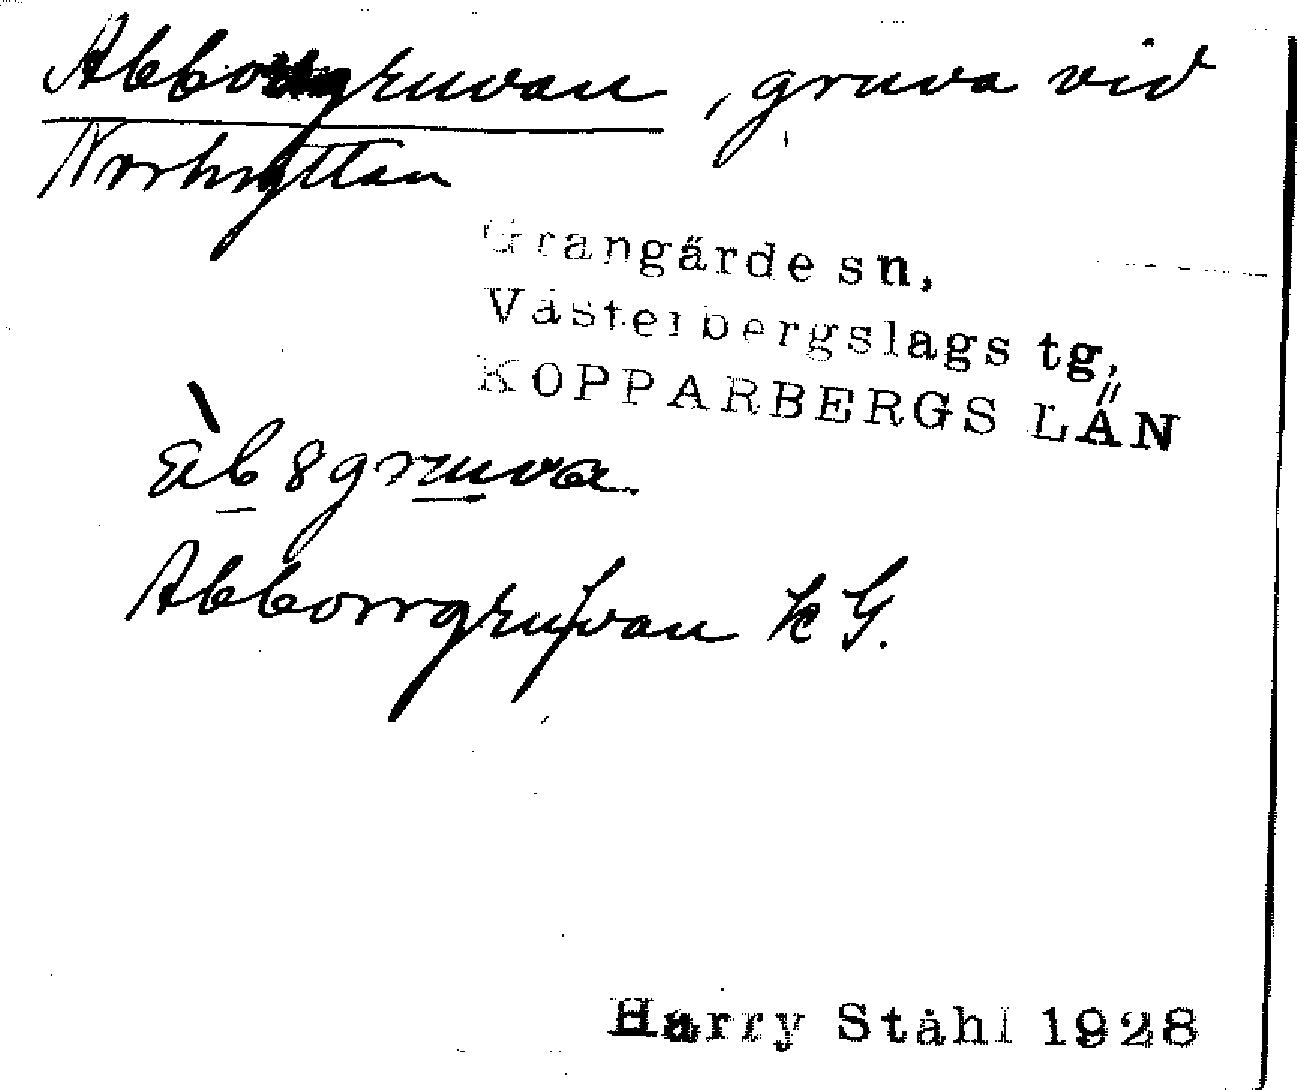 Abborrgruvan, gruva vid
Norhyttan
Grangärde sn,
Västerbergslags tg,
KOPPARBERGS LÄN
Abborrgrufvan k G.
Harry Ståhl 1928